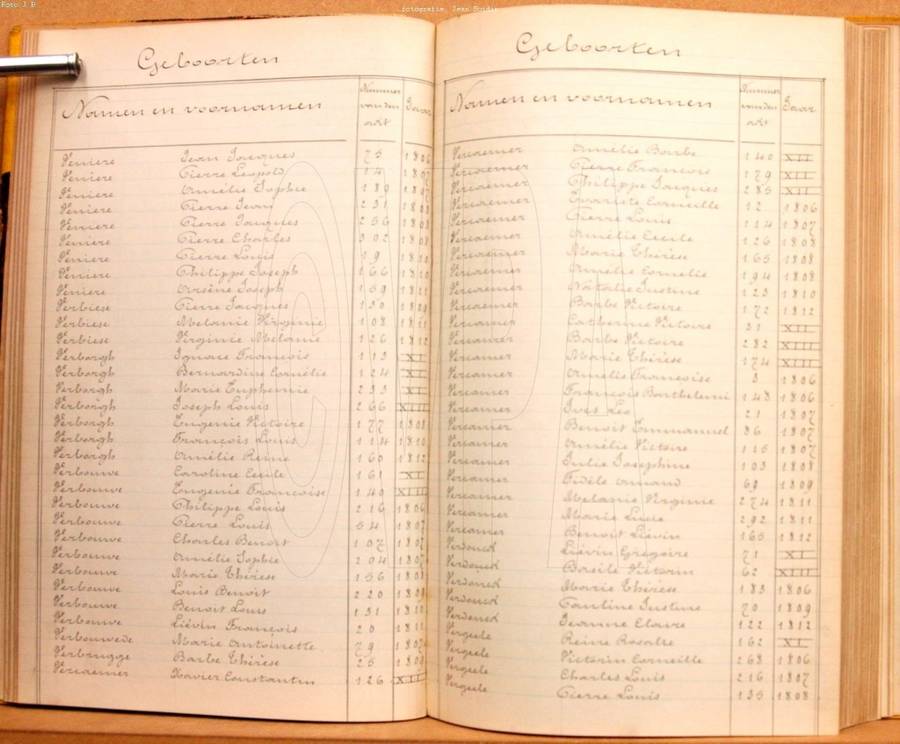 Foto J P
fotografie, Jean
Geboorten
Namen en voornamen Nummer van den akt Jaar
Veniere Jean Jacques 75 1806
Veniere Pierre Leopold 14 1807
Veniere Amélie Sophie 189 1807
Veniere Pierre Jean 231 1808
Veniere Pierre Jacques 256 1808
Veniere Pierre Charles 302 1808
Veniere Pierre Louis 19 1810
Veniere Philippe Joseph 166 1810
Veniere Arsène Joseph 159 1811
Verbiese Pierre Jacques 130 1809
Verbiese Melanie Virginie 108 1811
Verbiese Virginie Melanie 126 1812
Verborgh Ignace François 113 XI
Verborgh Bernardine Cornélie 124 XI
Verborgh Marie Euphemie 233 XI
Verborgh Joseph Louis 266 XIII
Verborgh Eugenie Victoire 177 1808
Verborgh François Louis 114 1810
Verborgh Amélie Reine 160 1812
Verbouwe Caroline Cecile 161 XI
Verbouwe Eugenie Françoise 140 XIII
Verbouwe Philippe Louis 216 1806
Verbouwe Pierre Louis 54 1807
Verbouwe Charles Benoit 107 1807
Verbouwe Amélie Sophie 204 1807
Verbouwe Marie Thérèse 156 1808
Verbouwe Louis Benoit 220 1808
Verbouwe Benoit Louis 131 1810
Verbouwe Liévin François 20 1811
Verbouwede Marie Antoinette 79 1807
Verbrugge Barbe Thérèse 25 1809
Vercaemer Xavier Constantin 126 XII
Geboorten
Namen en voornamen Nummer van den akt Jaar
Vercaemer Amélie Barbe 140 XII
Vercaemer Pierre François 179 XII
Vercaemer Philippe Jacques 285 XII
Vercaemer Evariste Corneille 12 1806
Vercaemer Pierre Louis 114 1807
Vercaemer Amélie Cecile 126 1808
Vercaemer Marie Thérèse 165 1808
Vercaemer Amélie Cornélie 194 1808
Vercaemer Natalie Justine 123 1810
Vercaemer Barbe Victoire 172 1812
Vercamer Catherine Victoire 31 XII
Vercamer Barbe Victoire 282 XIII
Vercamer Marie Thérèse 174 XIII
Vercamer Amélie Françoise 3 1806
Vercamer François Barthelemi 148 1806
Vercamer Ives Leo 21 1807
Vercamer Benoit Emmanuel 86 1807
Vercamer Amélie Victoire 115 1807
Vercamer Julie Josephine 103 1808
Vercamer Fidèle Amand 69 1809
Vercamer Melanie Virginie 274 1811
Vercamer Marie Lucie 292 1811
Vercamer Benoit Liévin 165 1812
Verdonck Liévin Grégoire 71 XI
Verdonck Basile Victorin 62 XIII
Verdonck Marie Thérèse 183 1806
Verdonck Pauline Justine 70 1809
Verdonck Jeanne Claire 122 1812
Vergeele Reine Rosalie 162 XI
Vergeele Victorin Corneille 268 1806
Vergeele Charles Louis 216 1807
Vergeele Pierre Louis 135 1808